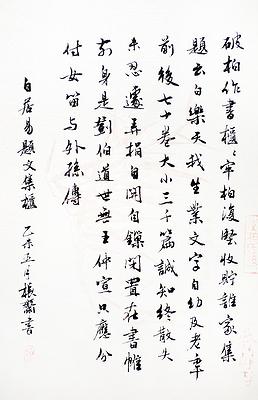 破柏作書櫃〻牢柏復堅收貯誰家集
題云白樂天我生業文字自幼及老年
前後七十卷大小三千篇誠知終散失
未忍遽棄捐自開自鏁閉置在書帷
前身是鄧伯道世無王仲宣只應分
付女留與外孫傳
白居易題文集櫃 乙未五月振書